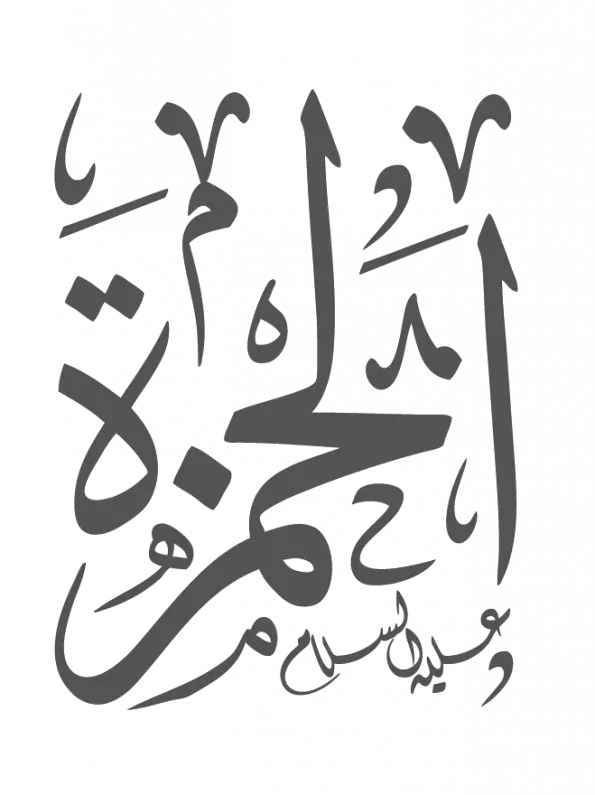 الحمزة
عليه السلام